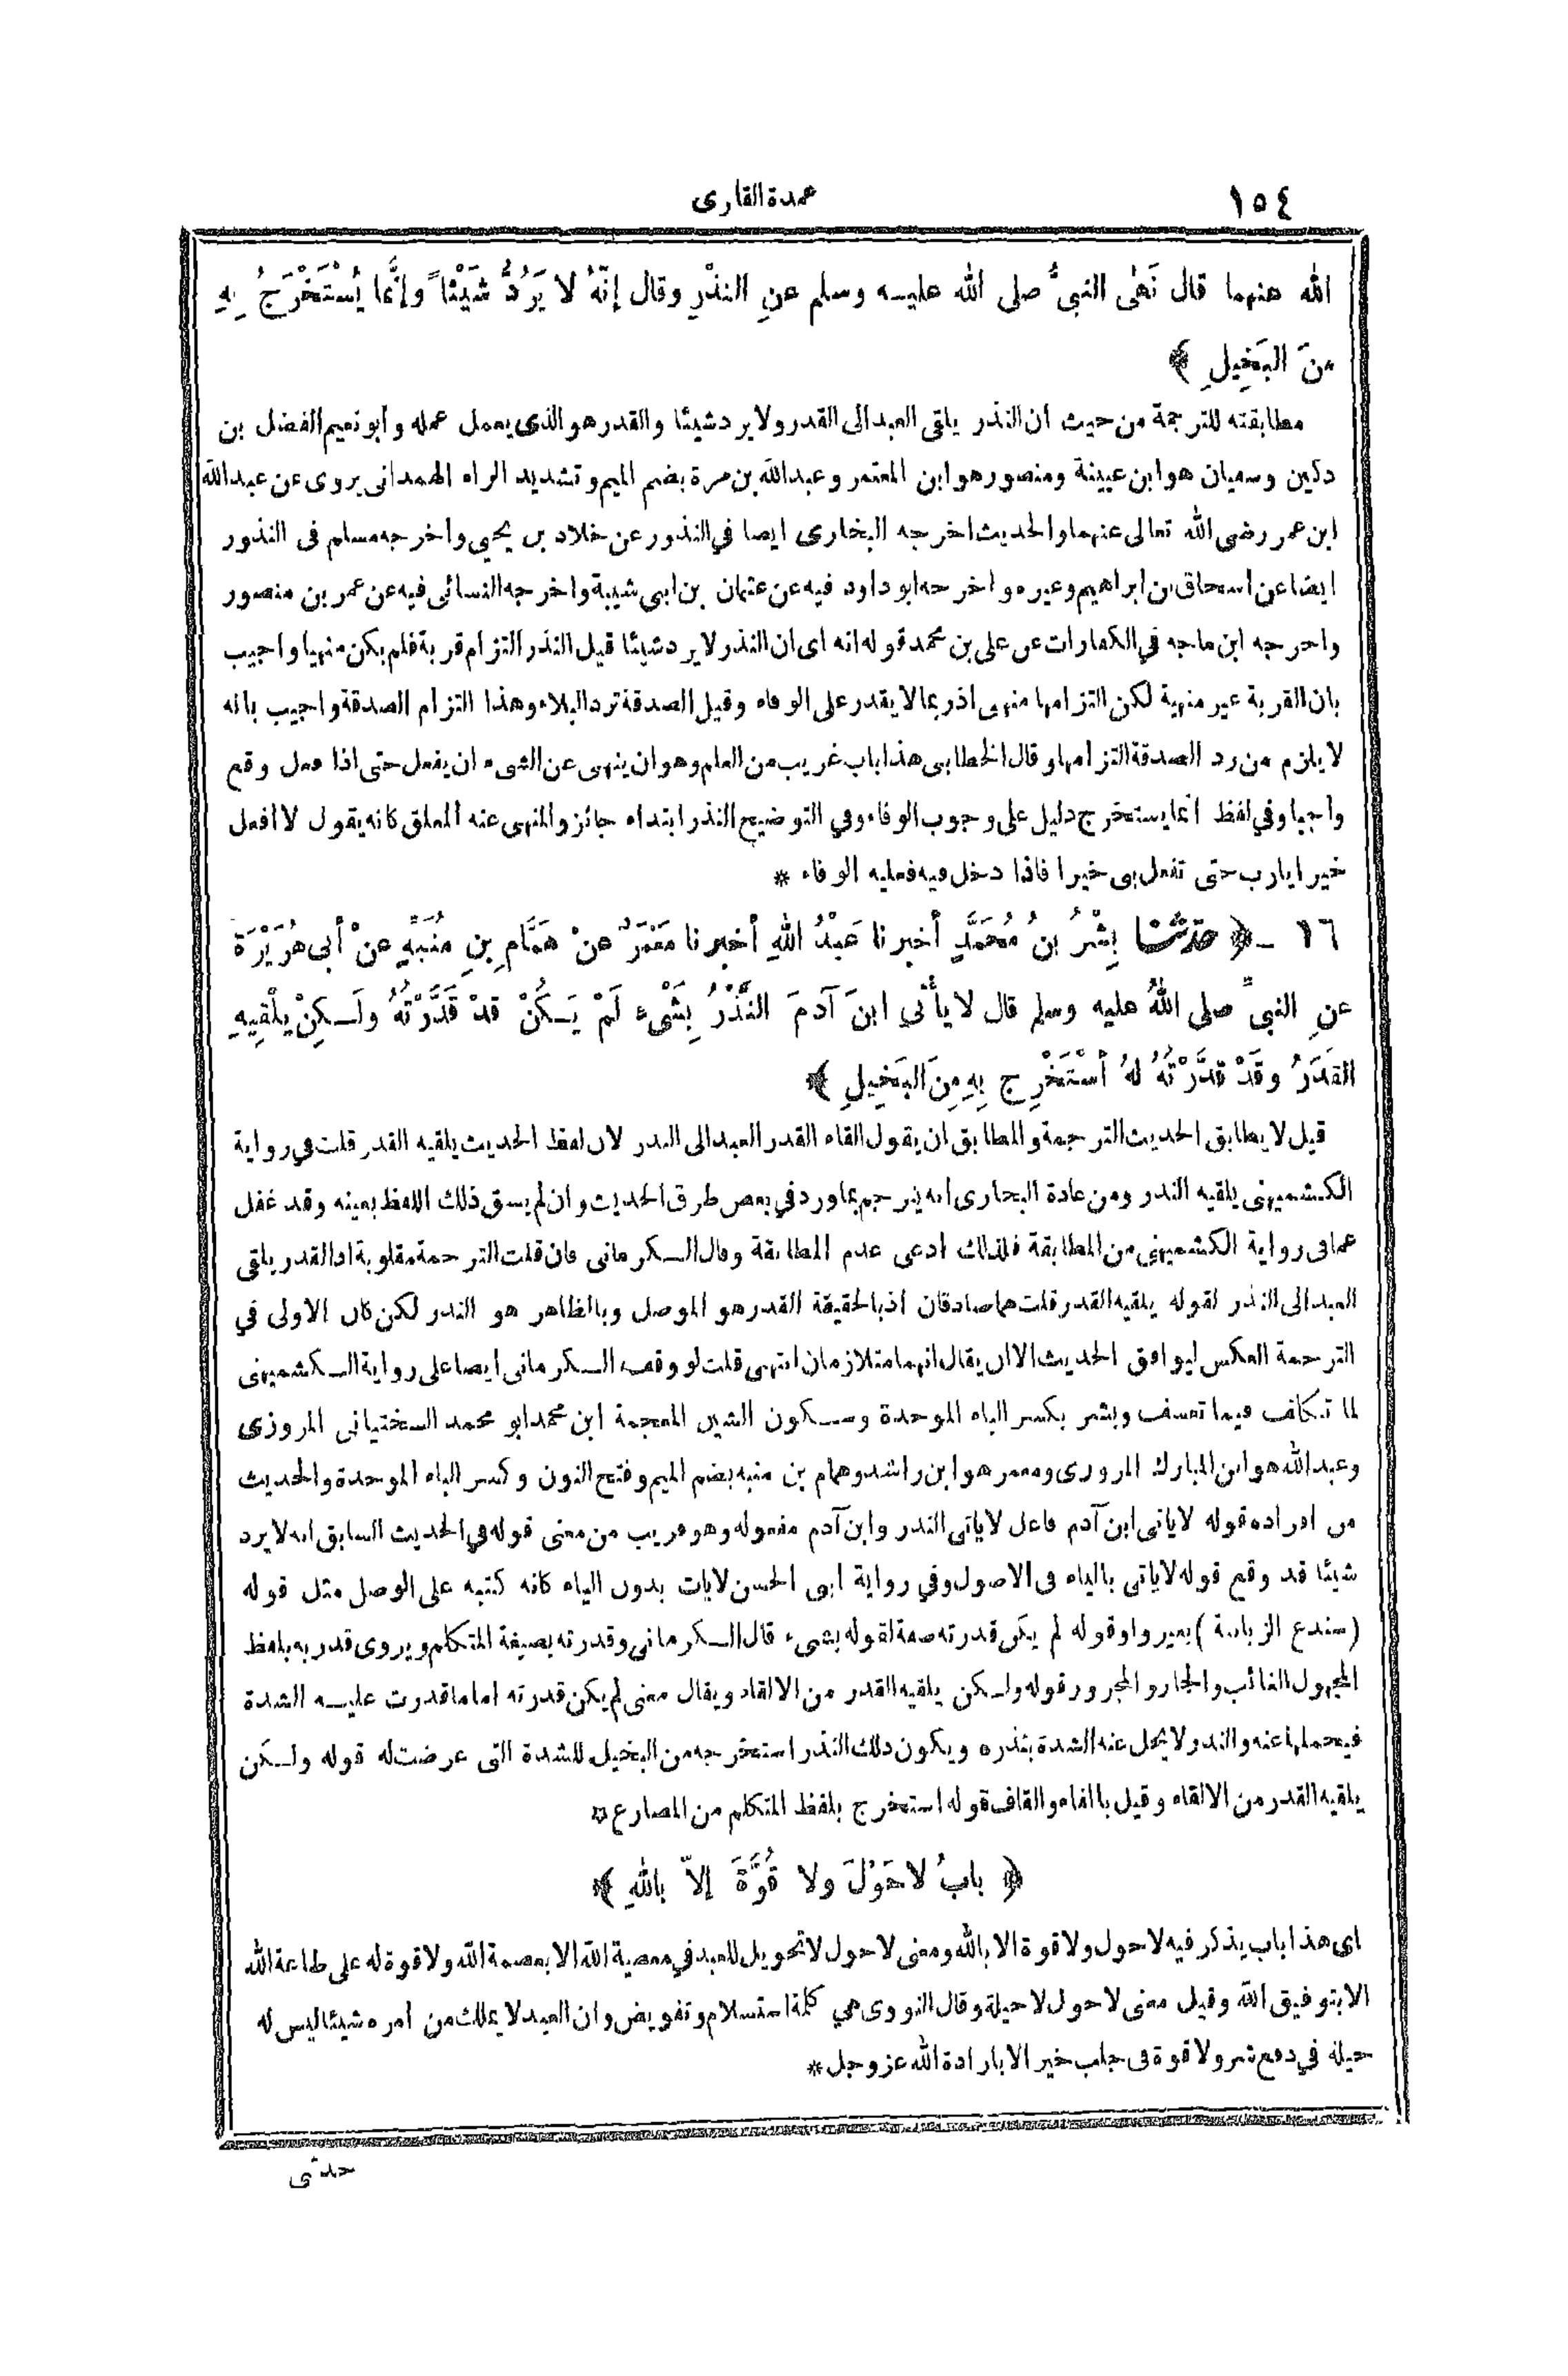 ١٥٤
عمدة القارى
الله عنهما قال نَهٰى النبىُّ صلى الله عليه وسلم عنِ النذْرِ وقال إنّهُ لا يَرُدُّ شَيْئاً وإنَّما يُسْتَخْرَجُ بِهِ
منَ البَخِيلِ ﴾
مطابقته للترجمة من حيث ان النذر يلقى العبد الى القدر ولا يرد شيئا والقدر هو الذى يعمل عمله وأبو نعيم الفضل بن
دكين وسفيان هو ابن عيينة ومنصور هو ابن المعتمر وعبد الله بن مرة بضم الميم وتشديد الراء الهمدانى يروى عن عبد الله
ابن عمر رضى الله تعالى عنهما والحديث اخرجه البخارى ايضا في النذور عن خلاد بن يحيى واخرجه مسلم فى النذور
ايضا عن اسحاق بن ابراهيم وغيره واخرجه ابو داود فيه عن عثمان بن ابى شيبة واخرجه النسائى فيه عن عمر بن منصور
واخرجه ابن ماجه في الكفارات عن على بن محمد قوله انه اى ان النذر لا يرد شيئا قيل النذر التزام قربة فلم يكن منهيا واجيب
بان القربة غير منهية لكن التزامها منهى اذ ربما لا يقدر على الوفاء وقيل الصدقة ترد البلاء وهذا التزام الصدقة واجيب بانه
لا يلزم من رد الصدقة التزامها وقال الخطابى هذا باب غريب من العلم وهو ان ينهى عن الشىء ان يفعل حتى اذا فعل وقع
واجبا وفي لفظ انما يستخرج دليل على وجوب الوفاء وفي التوضيح النذر ابتداء جائز والمنهى عنه المعلق كانه يقول لا افعل
خيرا يارب حتى تفعل بى خيرا فاذا دخل فيه فعليه الوفاء *
١٦ - ﴿ حدّثنا بِشْرُ بنُ مُحَمَّدٍ أخبرنا عَبْدُ اللهِ أخبرنا مَعْمَرٌ عنْ هَمَّامِ بنِ مُنَبِّهٍ عنْ أبى هُرَيْرَةَ
عنِ النبىِّ صلى اللهُ عليه وسلم قال لا يأتي ابنَ آدمَ النَّذْرُ بِشَىْء لَمْ يَكُنْ قدْ قَدَّرْتُهُ ولَكِنْ يلْقِيهِ
القَدَرُ وقَدْ قدَّرْتُهُ لهُ أسْتَخْرِج بِهِ مِنَ البَخِيلِ ﴾
قيل لا يطابق الحديث الترجمة والمطابق ان يقول القاء القدر العبد الى النذر لان لفظ الحديث يلقيه القدر قلت في رواية
الكشميهنى يلقيه النذر ومن عادة البخارى انه يترجم بما ورد في بعض طرق الحديث وان لم يسق ذلك اللفظ بعينه وقد غفل
عما فى رواية الكشميهني من المطابقة فلذلك ادعى عدم المطابقة وقال الكرمانى فان قلت الترجمة مقلوبة اذ القدر يلقى
العبد الى النذر لقوله يلقيه القدر قلت هما صادقان اذ بالحقيقة القدر هو الموصل وبالظاهر هو النذر لكن كان الاولى في
الترجمة العكس ليوافق الحديث الا ان يقال انهما متلازمان انتهى قلت لو وقف الكرمانى ايضا على رواية الكشميهنى
لما تكلف فيما تعسف وبشر بكسر الباء الموحدة وسكون الشين المعجمة ابن محمد ابو محمد السختيانى المروزى
وعبد الله هو ابن المبارك المروزى ومعمر هو ابن راشد وهمام بن منبه بضم الميم وفتح النون وكسر الباء الموحدة والحديث
من افراده قوله لا ياتى ابن آدم فاعل لا ياتى النذر وابن آدم مفعوله وهو قريب من معنى قوله في الحديث السابق انه لا يرد
شيئا قد وقع قوله لا ياتى بالياء فى الاصول وفي رواية ابى الحسن لايات بدون الياء كانه كتبه على الوصل مثل قوله
(سندع الزبانية) بغير واو قوله لم يكن قدرته صفة لقوله بشىء قال الكرماني وقدرته بصيغة المتكلم ويروى قدر به بلفظ
المجهول الغائب والجار والمجرور قوله ولكن يلقيه القدر من الالقاء ويقال معنى لم يكن قدرته اما ما قدرت عليه الشدة
فيحملها عنه والنذر لا يحل عنه الشدة بنذره ويكون ذلك النذر استخرجه من البخيل للشدة التى عرضت له قوله ولكن
يلقيه القدر من الالقاء وقيل بالفاء والقاف قوله استخرج بلفظ المتكلم من المضارع *
﴿ بابُ لا حَوْلَ ولا قُوَّةَ إلاّ باللهِ ﴾
اى هذا باب يذكر فيه لا حول ولا قوة الا بالله ومعنى لا حول لا تحويل للعبد في معصية الله الا بعصمة الله ولا قوة له على طاعة الله
الا بتوفيق الله وقيل معنى لا حول لا حيلة وقال النووى هي كلمة استسلام وتفويض وان العبد لا يملك من امره شيئا ليس له
حيلة في دفع شر ولا قوة فى جلب خير الا بارادة الله عز وجل *
حدثنى